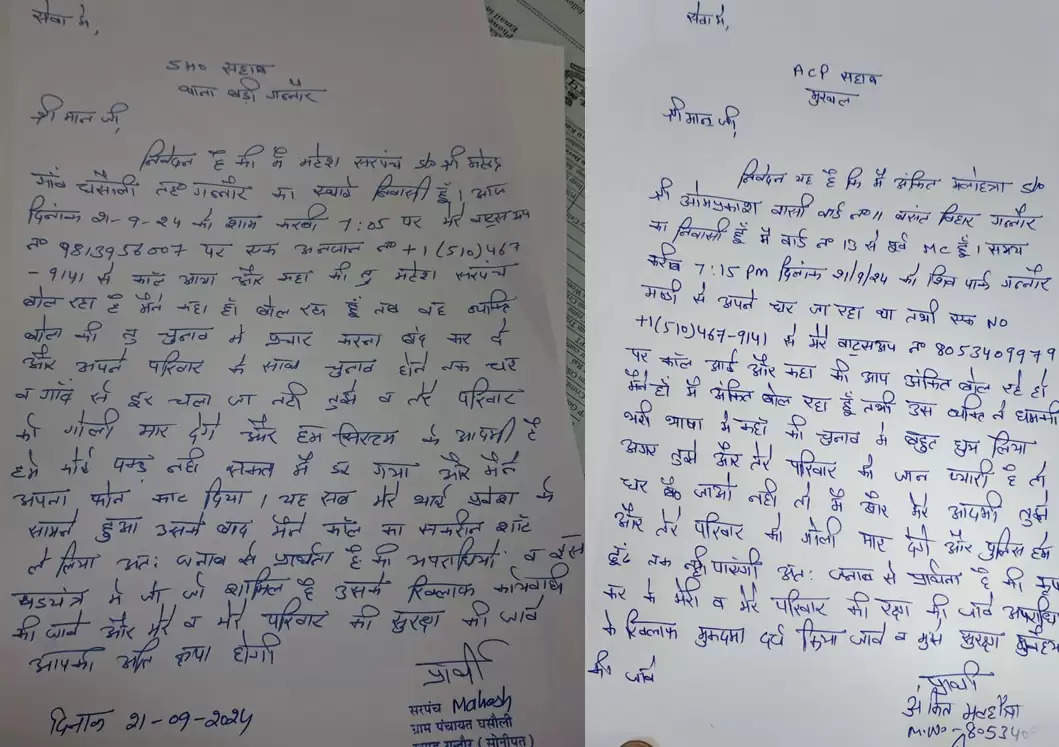 सेवा में,
SHO सहाब
थाना बडी गन्नौर
श्री मान जी,
निवेदन है की मैं महेश सरपंच S/o श्री
गाँव घसौली तह० गन्नौर का स्थाई निवासी हूँ। आज
दिनांक 21-9-24 को शाम करीब 7:05 पर मेरे वाट्सअप
न० 9813956007 पर एक अनजान न० +1(510)467
-9141 से कॉल आया और कहा की तु महेश सरपंच
बोल रहा है मैंने कहा हाँ बोल रहा हूँ तब वह व्यक्ति
बोला की तु चुनाव मे प्रचार करना बंद कर दे
और अपने परिवार के साथ चुनाव होने तक घर
व गाँव से दूर चला जा नही तुझे व तेरे परिवार
को गोली मार देगे और हम सिस्टम के आदमी है
हमे कोई पकड़ नही सकता मैं डर गया और मैंने
अपना फोन काट दिया। यह सब मेरे भाई प्रवेश के
सामने हुआ उसके बाद मैंने कॉल का सकरीन शॉट
ले लिया अत: जनाब से प्रार्थना है की अपराधियों व इस
षडयंत्र मे जो जो शामिल है उसके खिलाफ कार्यवाही
की जावे और मेरे व मेरे परिवार की सुरक्षा की जावे
आपकी अति कृपा होगी
प्रार्थी
सरपंच Mahesh
ग्राम पंचायत घसौली
गन्नौर (सोनीपत)
दिनांक 21-09-2024
सेवा में,
ACP सहाब
मुरथल
श्री मान जी,
निवेदन यह है कि मैं अंकित मल्होत्रा S/o
श्री ओमप्रकाश वासी वार्ड न० 11 बसंत विहार गन्नौर
का निवासी हूँ मैं वार्ड न० 13 से पूर्व MC हूँ। समय
करीब 7:15 PM दिनांक 21/9/24 को शिव पार्क गन्नौर
मण्डी से अपने घर जा रहा था तभी एक NO
+1(510)467-9141 से मेरे वाट्सअप न० 8053409979
पर कॉल आई और कहा की आप अंकित बोल रहे हो
मैंने हाँ मैं अंकित बोल रहा हूँ तभी उस व्यक्ति ने धमकी
भरी भाषा मे कहाँ की चुनाव मे बहुत घुम लिया
अगर तुझे और तेरे परिवार की जान प्यारी है तो
घर बैठ जाओ नही तो मैं और मेरे आदमी तुझे
और तेरे परिवार को गोली मार देगे और पुलिस हमे
ढूंढ तक नही पाएगी अत: जनाब से प्रार्थना है की
कर के मेरी व मेरे परिवार की रक्षा की जावे
के खिलाफ मुकदमा दर्ज किया जावे व मुझे सुरक्षा
की जावे
प्रार्थी
अंकित मल्होत्रा
M.NO - 80534